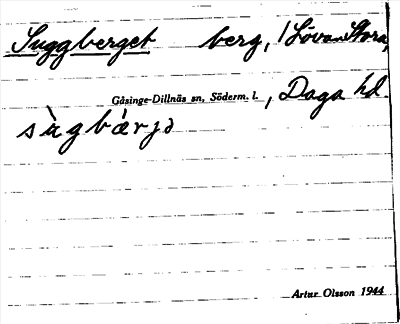 Suggberget berg, /Lövan Stora,
Gåsinge-Dillnäs sn, Söderm. l., Daga hd
sùgbǽrjə
Artur Olsson 1944